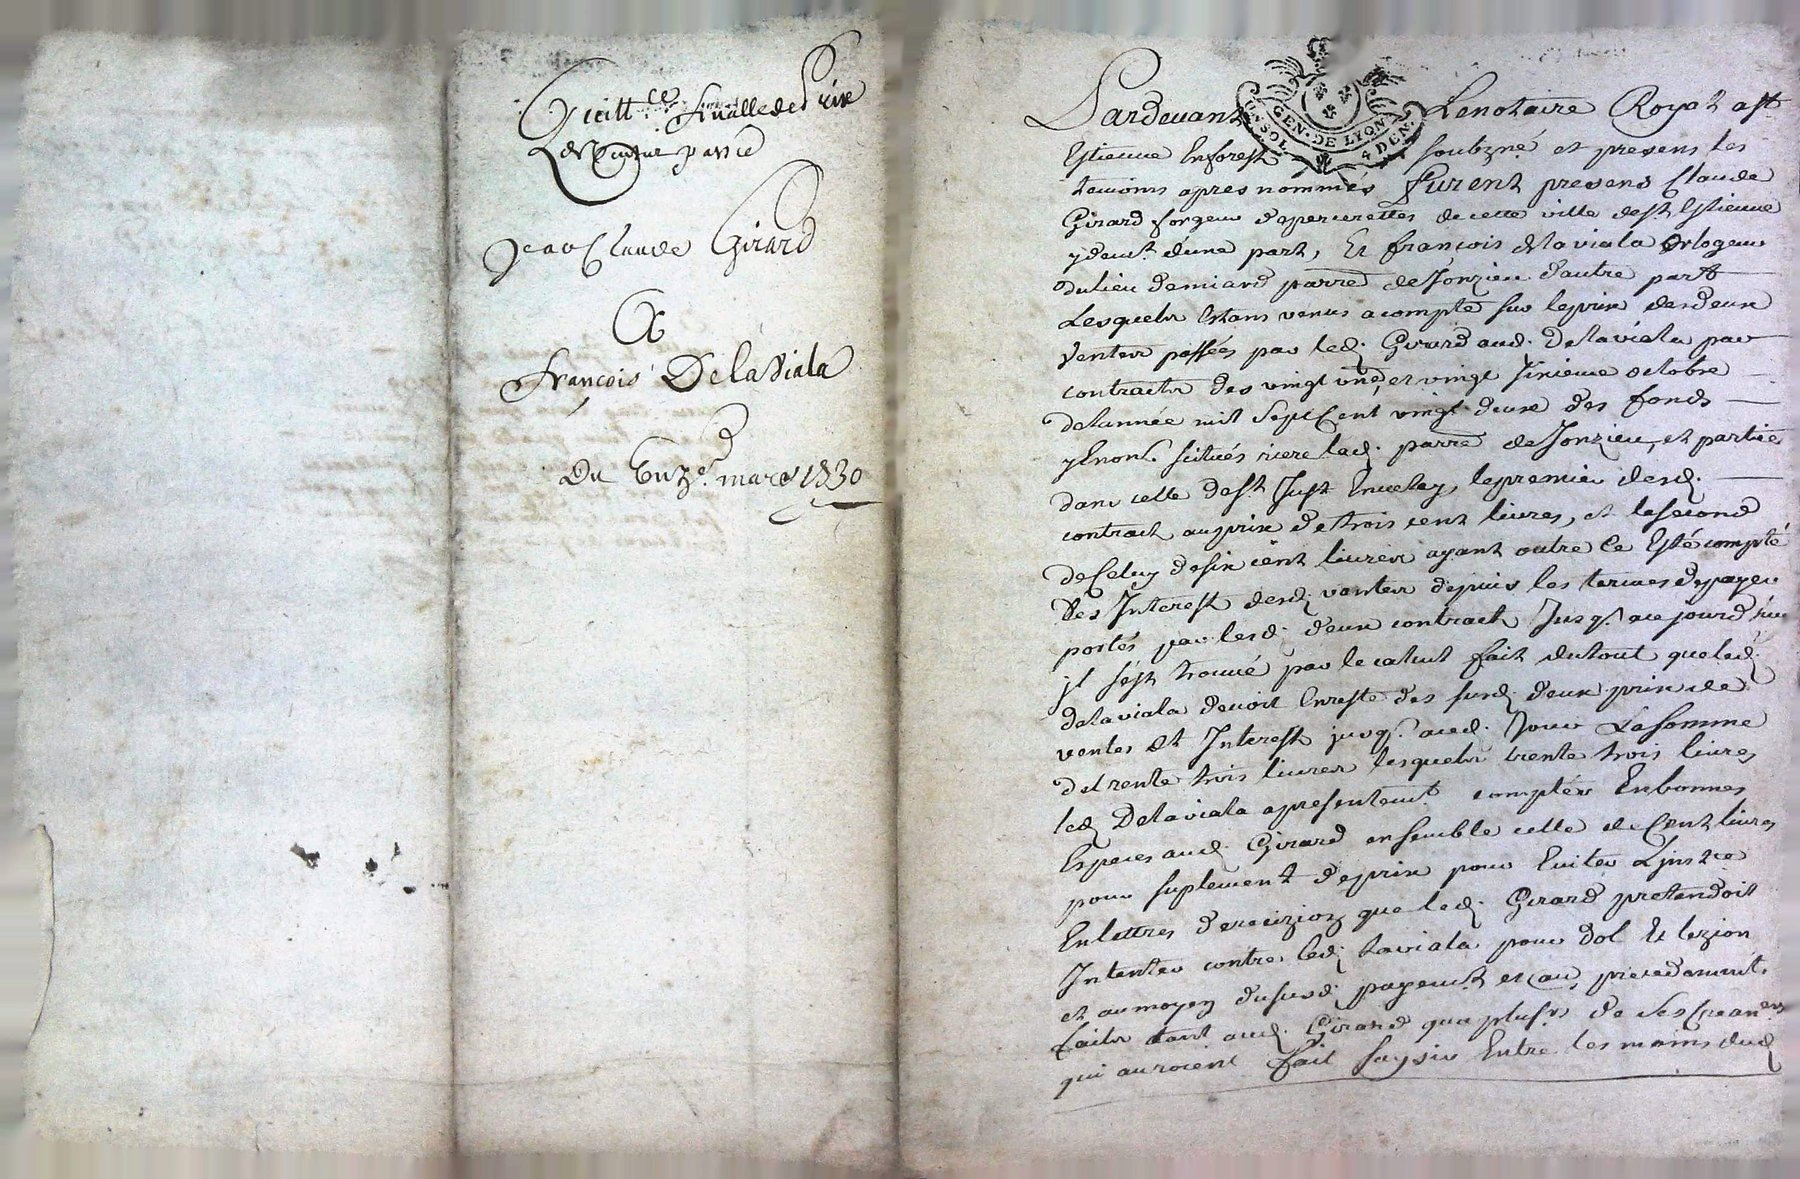 Quitt.ce finalle de Prix
de Vente passé
Jean Claude Girard
A
François Delaviala
Du Onz.e mars 1730
Pardevant Le notaire Royal a St
GEN. DE LYON
SOL. 4 DEN.
Estienne Enforest soubzné et presens les
temoins apres nommés furent presens Claude
Girard forgeur de cette ville de St Estienne
d'une part, Et françois delaviala orlogeur
du lieu demiard parre de Jonzieu d'autre part
Lesquels Estans venus a compte sur le prix des deux
Ventes passées par led. Girard aud. Delaviala par
contracts des vingt une et vingt sixieme octobre
de l'année mil sept Cent vingt deux des fonds
y Enon. scitués riere lad. parre de Jonzieu, et partie
dans celle de St Just Envelay, le premier desd.
contract au prix de trois cent livres, et le second
de Celuy de six cent livres ayant outre ce Esté compté
Des Interest desd. ventes depuis les termes de payer
portés par lesd. deux contracts Jusq. au jourd'huy
jl s'est trouvé par le calcul fait du tout que led.
delaviala devoit En reste des susd. deux prix de
ventes et Interest jusq. aud. Jour La somme
de trente trois livres lesquels trente trois livres
led. Delaviala a presentemt. comptés En bonnes
Especes aud. Girard ensemble celle de Cent livres
pour suplement de prix pour Eviter L'instce
En lettres de recizion que led. Girard pretendoit
Intenter contre led. Laviala pour dol Et lezion
et au moyen du susd. payemt. et precedammt.
faits tant aud. Girard qua plusrs de ses Crean.ers
qui auroient fait saysir Entre les mains dud.